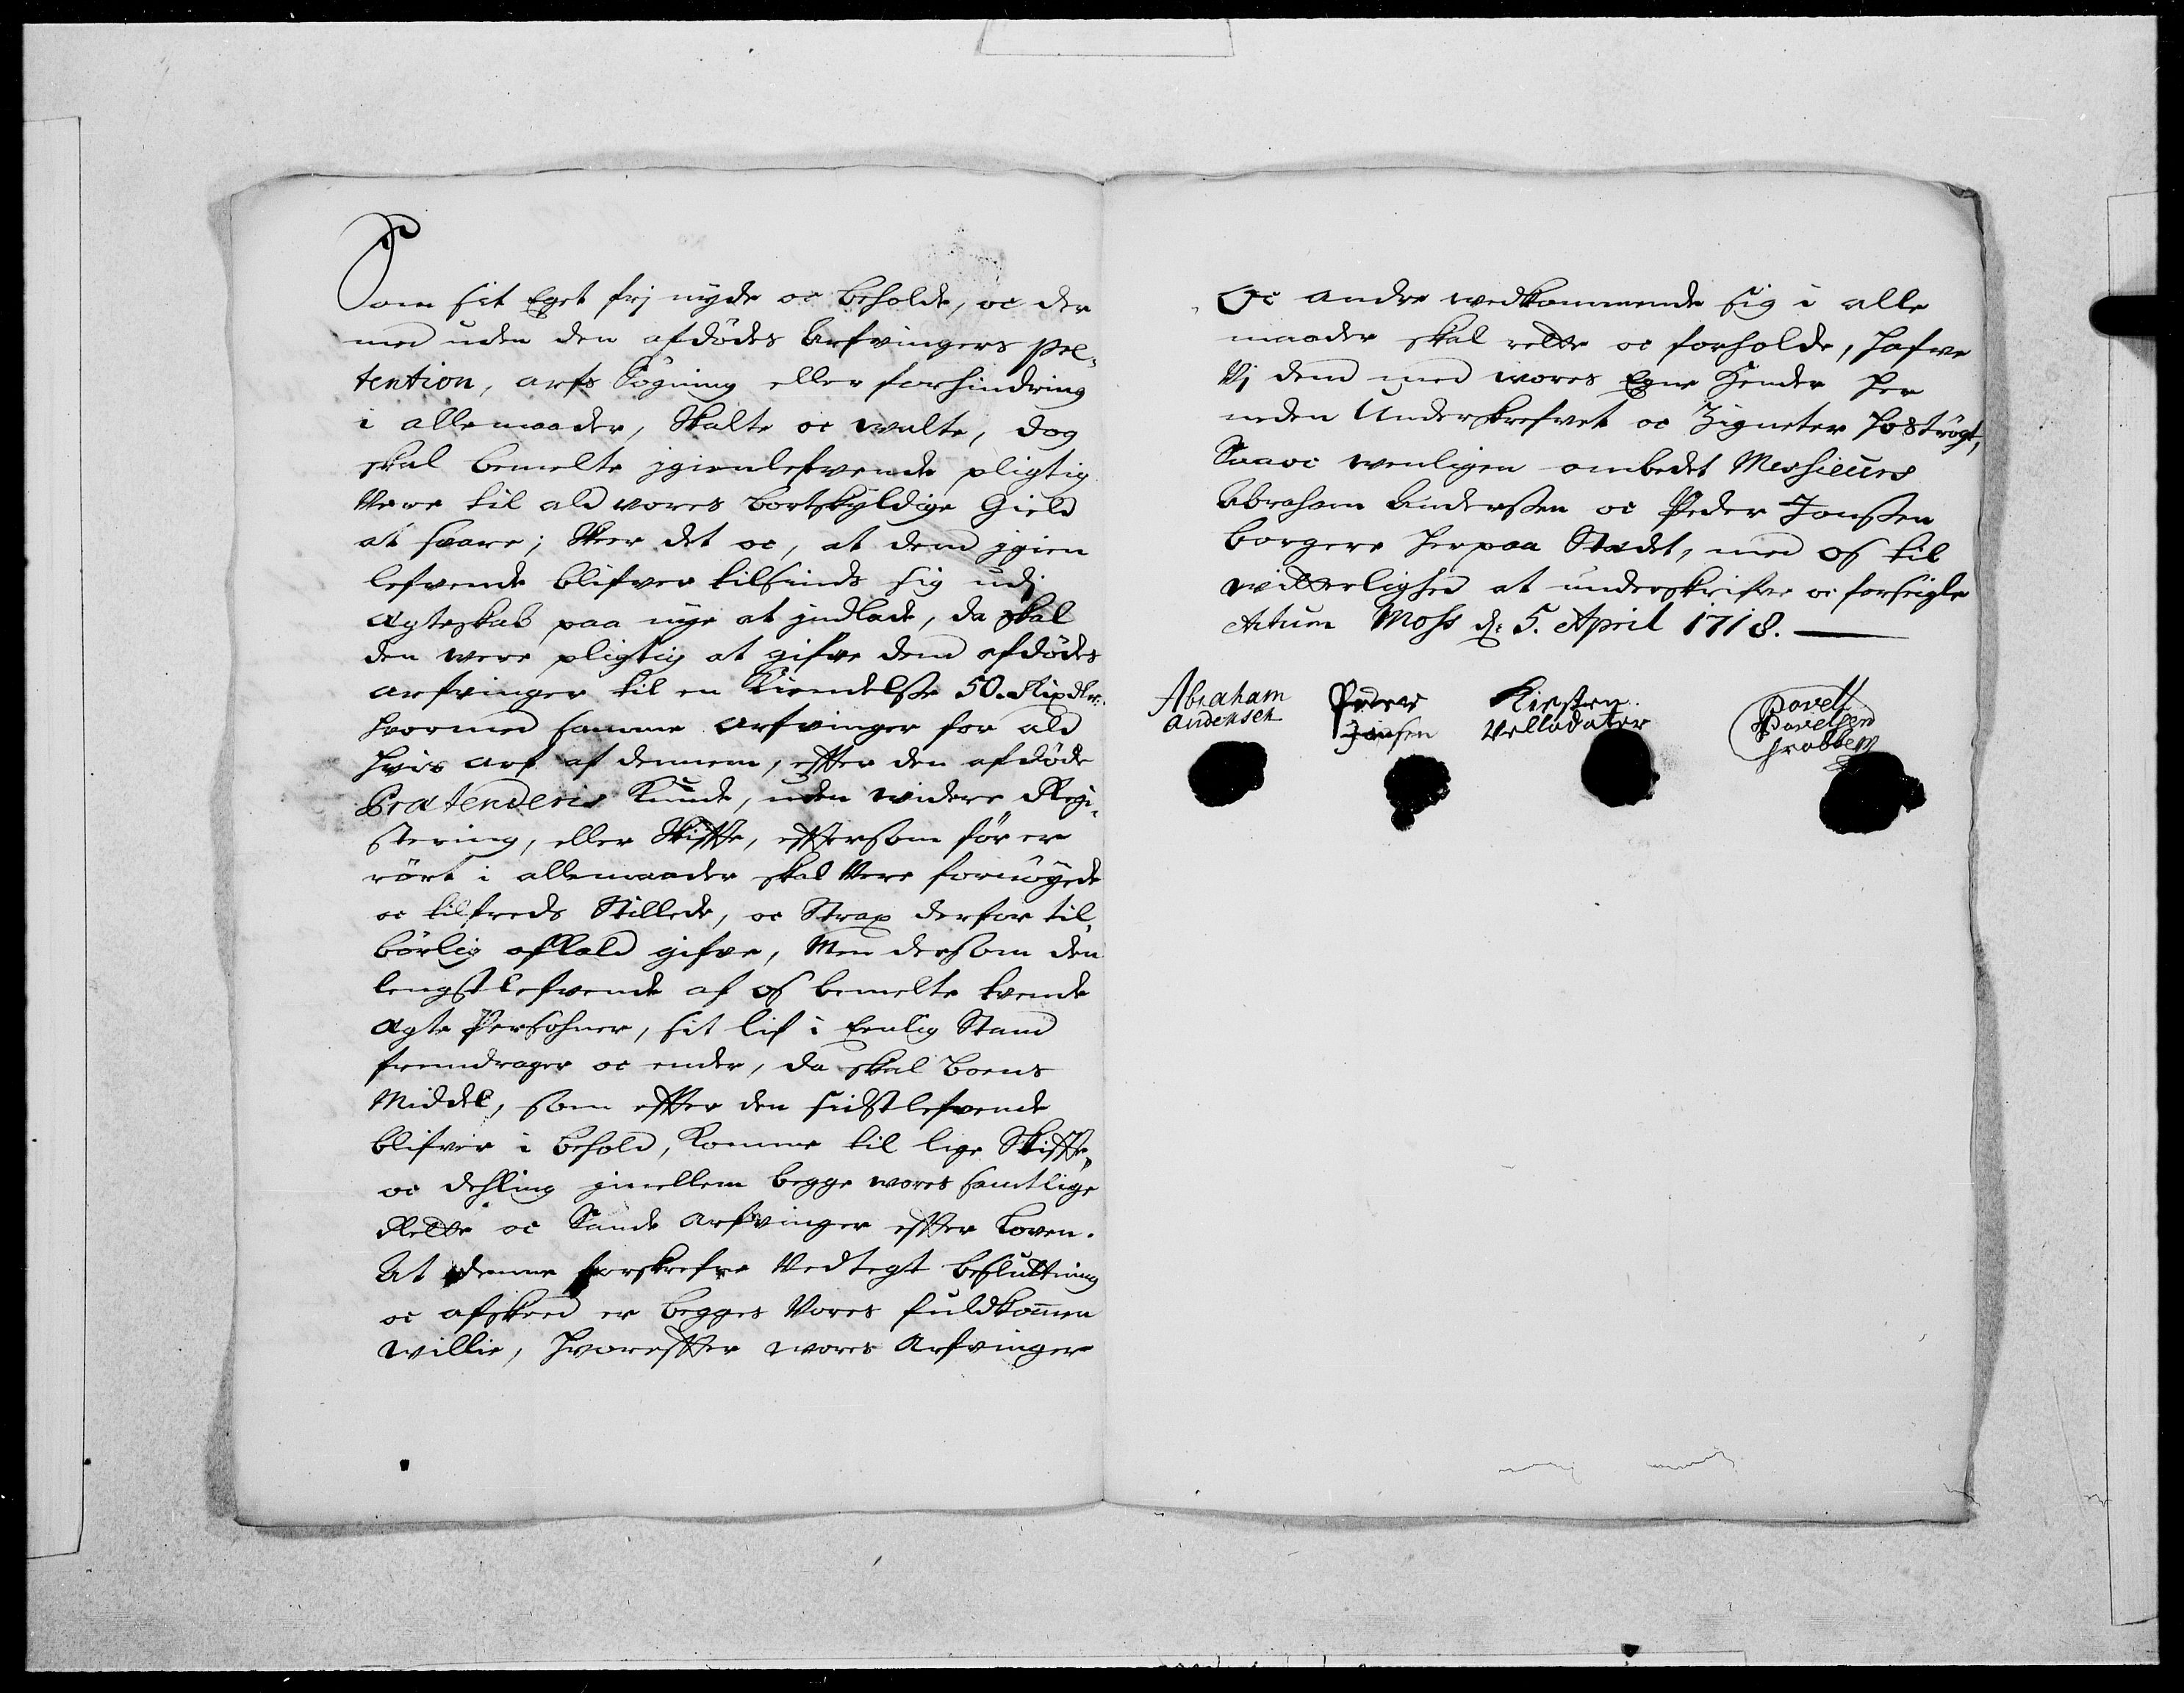 Som sit Eget frj nyde oc beholde, oc der
med uden den afdødes Arfvingers Præ¬
tention, arfs Søgning eller forhindring
i allemaader, Skalte oc walte, dog
skal bemelte jgienlefvende pligtig
Være til ald vores bortskyldige Gield
at svare; Skeer det oc, at dend jgien
lefvende blifver tilsinds sig udj
Ægteskab paa nye at indlade, da skal
den were pligtig at gifve dend afdødes
arfvinger til en Kiendelsse 50. Rixdlr:
hvormed samme Arfvinger for ald
hvis arf af dennem, effter den afdøde
Prætenderis Kunde, uden widere Regi¬
stering, eller Skiffte, efftersom før er
rørt i allemaader skal Være fornøyede
oc tilfreds Stillede, oc Strax derfor til¬
børlig afkald gifve, Men dersom den
lengstlefvende af os bemelte tvende
Ægte Persohner, sit lif i Eenlig Stand
fremdrager oc ender, da skal boens
Middel, som effter den sidstlefvende
blifver i behold, komme til lige Skiffte
oc dehling imellem begge wores samtlige
Rette oc Sande Arfvinger effter Loven.
At denne forskrefne Vedtegt beslutning
oc afskeed er begges Vores fuldkommen
willie, hvoreffter wores Arfvinger
Oc andre wedkommende sig i alle
maader skal rette oc forholde, hafve
Vj dend med wores Egne Hender her
neden Underskrefvet oc Zigneter hostrøgt,
Saa oc wenligen ombedet Messieurs
Abraham Anderssen oc Peder Jonssen
borgere her paa Stædet, med os til
witterlighed at underskrifve oc forseigle
Actum Moss d: 5. April 1718.
Abraham
Andersen
Peder
Jonsen
Kirsten
Povell
Povelsen